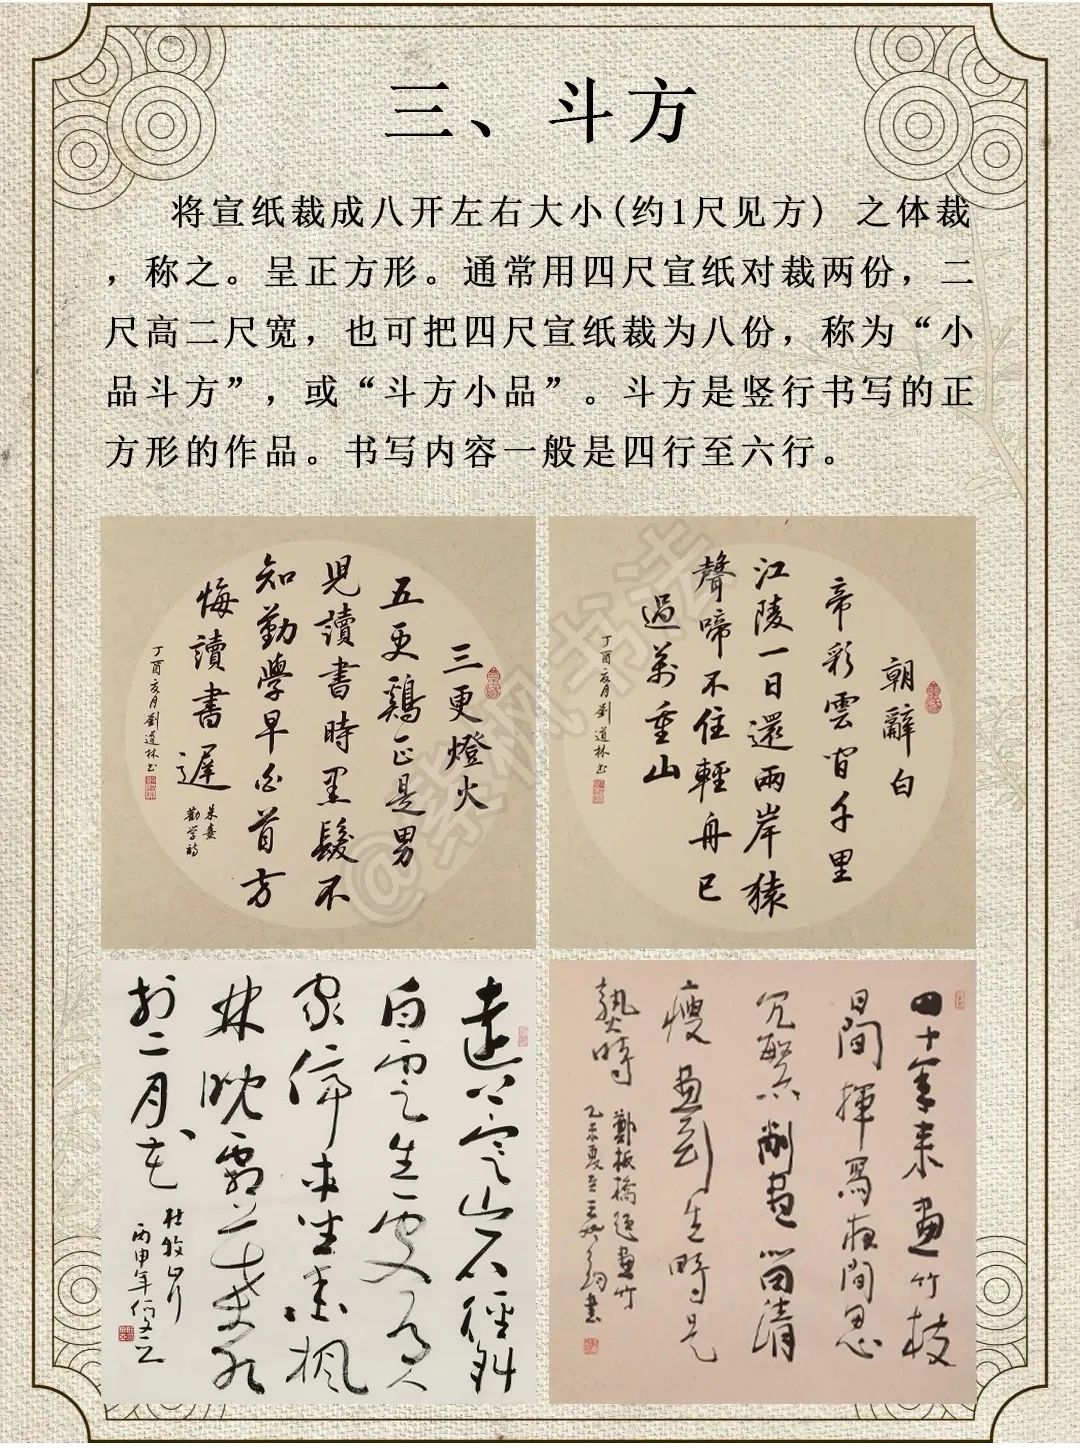 三、斗方
将宣纸裁成八开左右大小(约1尺见方) 之体裁
，称之。呈正方形。通常用四尺宣纸对裁两份，二
尺高二尺宽，也可把四尺宣纸裁为八份，称为“小
品斗方”，或“斗方小品”。斗方是竖行书写的正
方形的作品。书写内容一般是四行至六行。
三更燈火
五更鷄正是男
児讀書時黑髮不
知勤學早白首方
悔讀書遲
朱熹
勸学詩
丁酉亥月劉道林书
朝辭白
帝彩雲间千里
江陵一日還兩岸猿
聲啼不住輕舟已
過萬重山
丁酉亥月劉道林书
遠上寒山石徑斜
白雲生處有人
家停車坐愛楓
林晚霜葉紅
於二月花
杜牧山行
丙申年
四十年来画竹枝
日間揮寫夜間思
冗繁削尽留清
瘦画到生時是
熟時
鄭板橋題画竹
乙未夏至
@紫枫书法